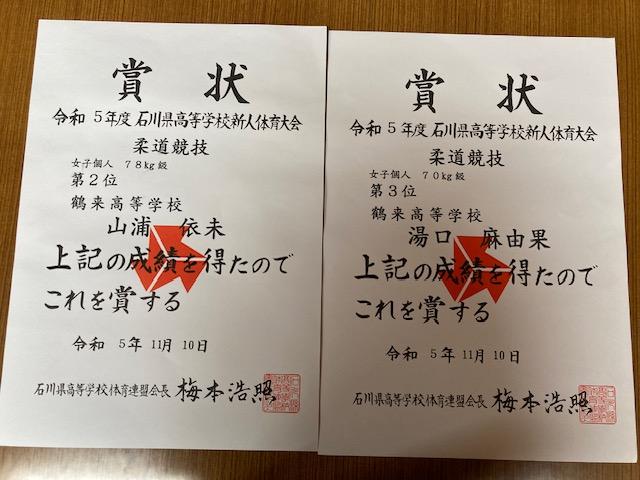 賞 状
令和 5年度 石川県高等学校新人体育大会
柔道競技
女子個人 78kg級
第2位
鶴来高等学校
山浦 依未
上記の成績を得たので
これを賞する
令和 5年 11月 10日
石川県高等学校体育連盟会長 梅本浩照
賞 状
令和 5年度 石川県高等学校新人体育大会
柔道競技
女子個人 70kg級
第3位
鶴来高等学校
湯口 麻由果
上記の成績を得たので
これを賞する
令和 5年 11月 10日
石川県高等学校体育連盟会長 梅本浩照